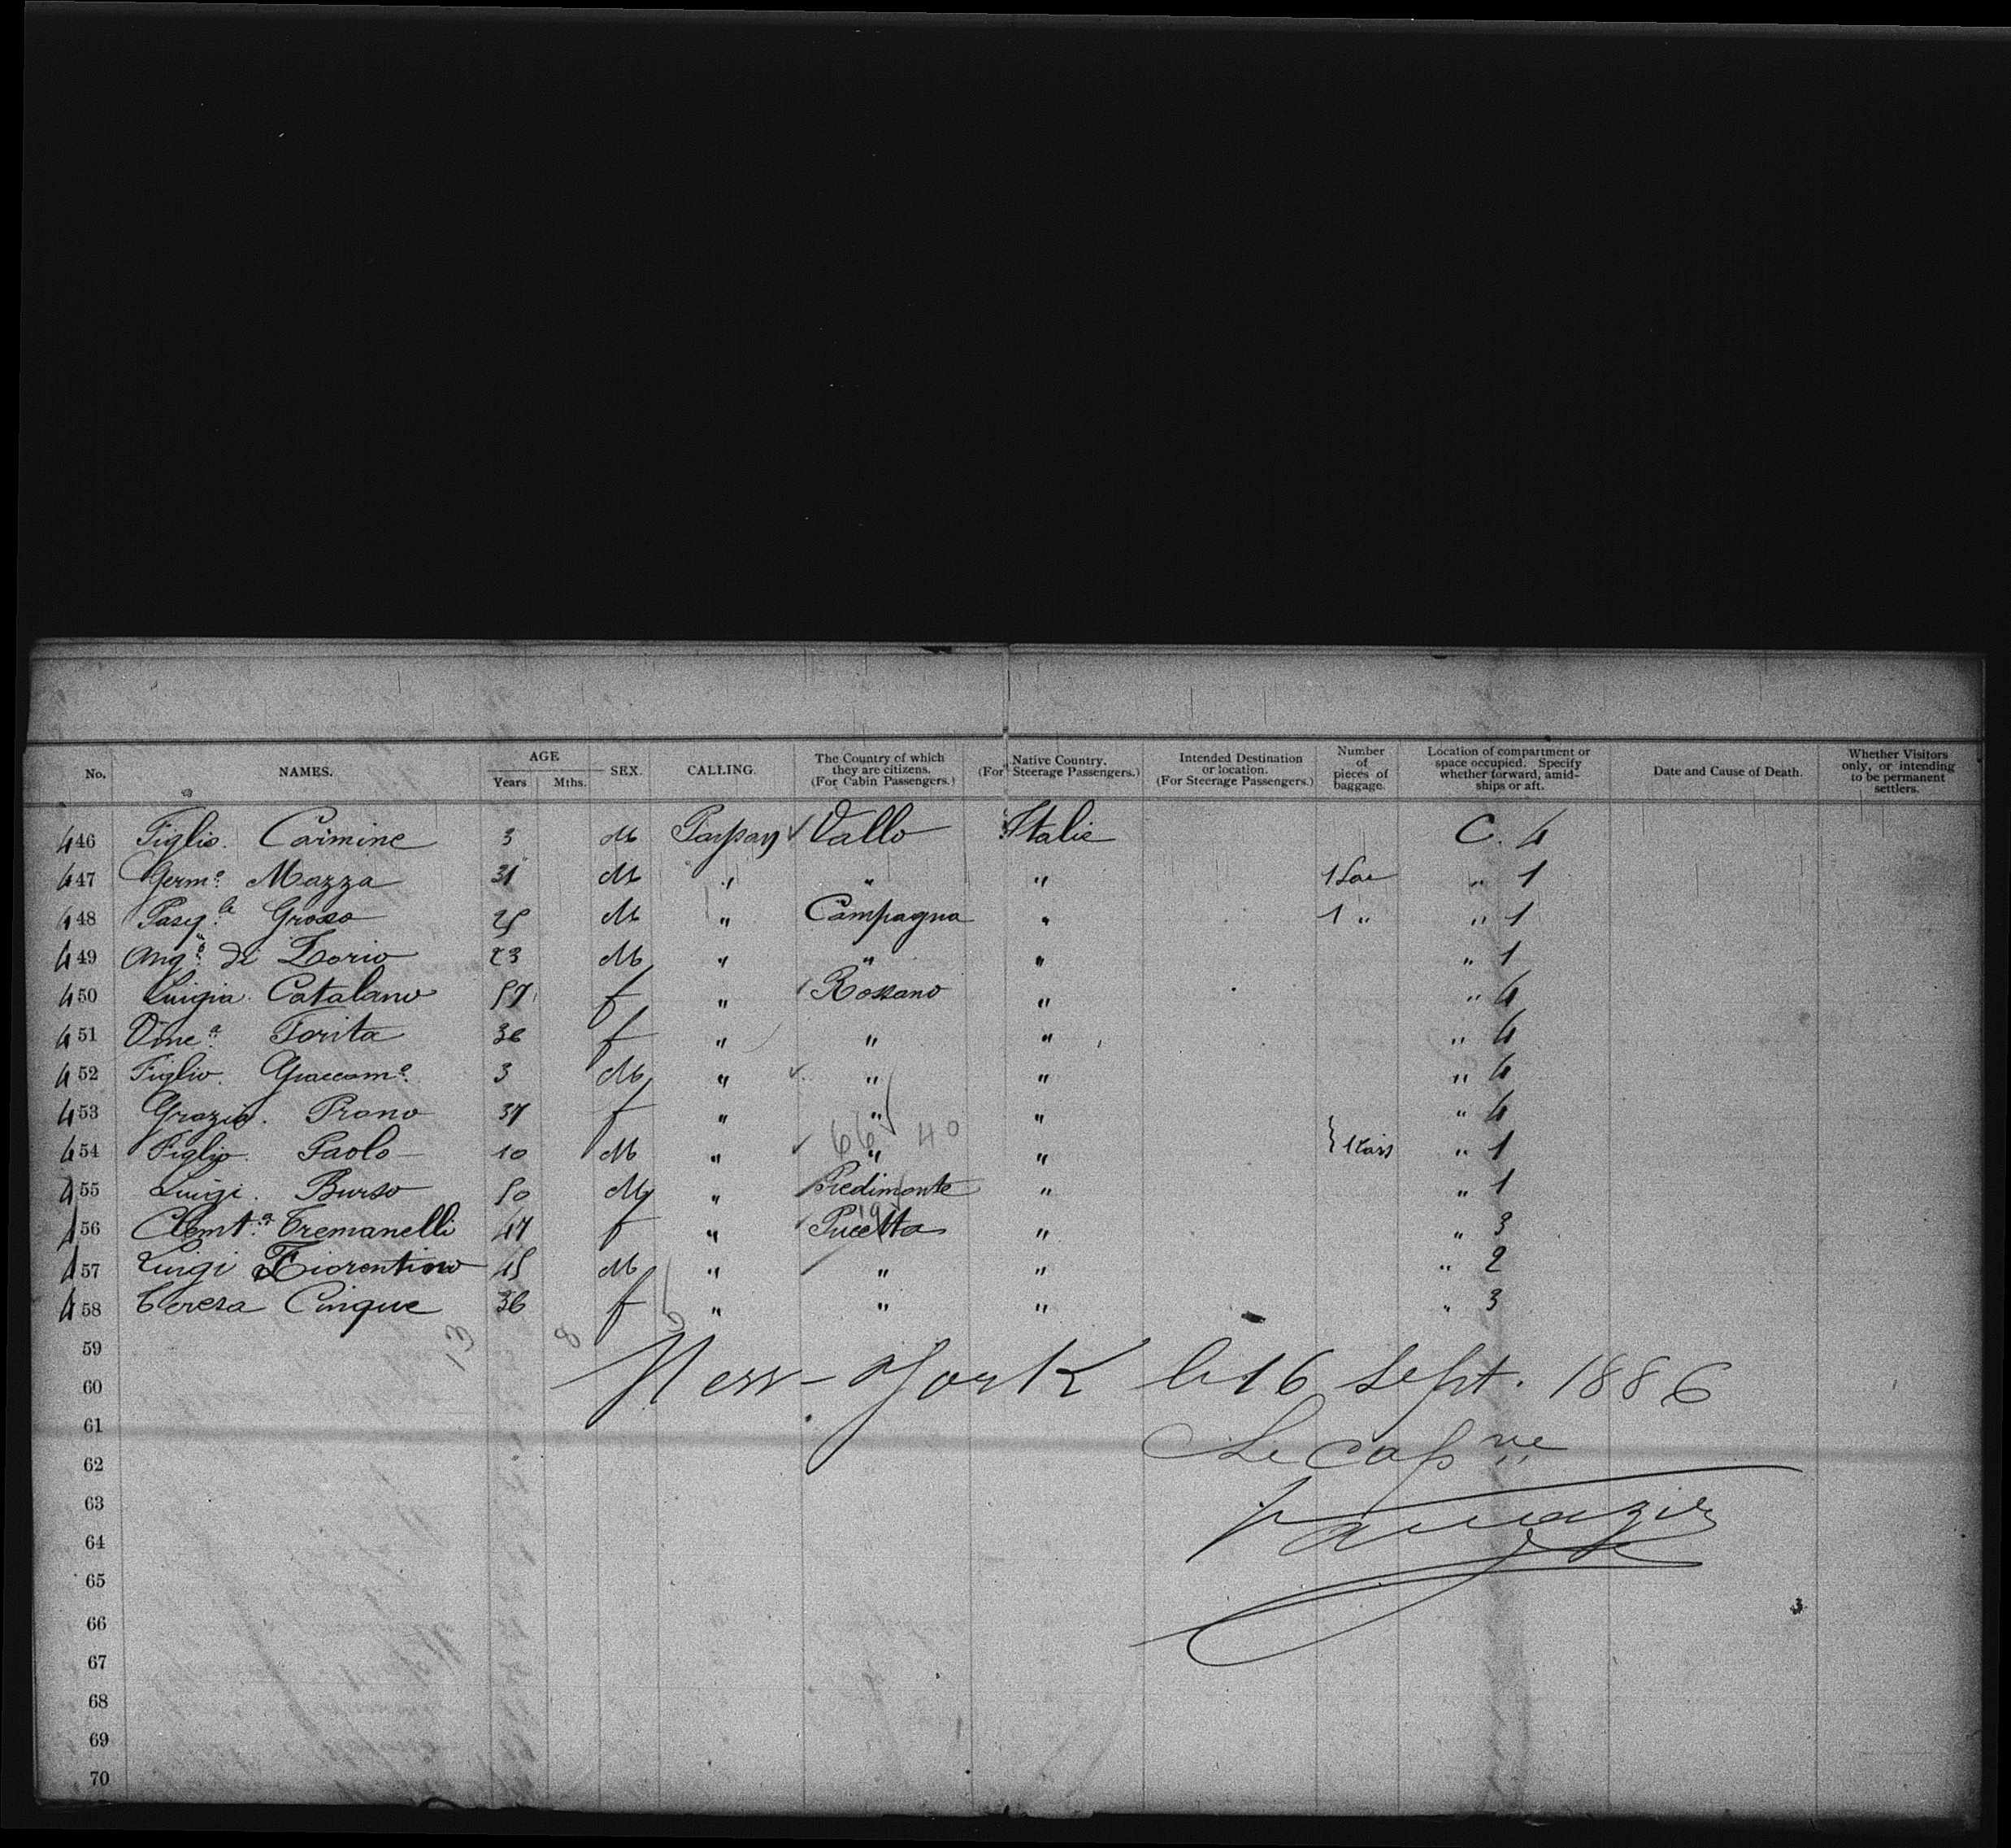 No. NAMES. AGE Years Mths. SEX. CALLING. The Country of which they are citizens. (For Cabin Passengers.) Native Country. (For Steerage Passengers.) Intended Destination or location. (For Steerage Passengers.) Number of pieces of baggage. Location of compartment or space occupied. Specify whether forward, amidships or aft. Date and Cause of Death. Whether Visitors only, or intending to be permanent settlers.
446 Figlio. Carmine 3 M Vallo Italie C. 4
447 Germº. Mazza 31 M " " " 1 Sac " 1
448 Pasqle Grosso 25 M " Campagna " 1 " " 1
449 Angº. di Iorio 23 M " " " " 1
450 Luigia. Catalano 57 f " Rossano " " 4
451 Vincª. Torita 36 f " " " " 4
452 Figlio. Giaccomº. 3 M " " " " 4
453 Grazia. Prano 37 f " " " " 4
454 Figlio. Paolo 10 M " " " " 1
66 40
455 Luigi. Burso 50 M " Piedimonte " " 1
456 Clemtª. Tremanelli 47 f " " " 3
457 Luigi Fiorentino 45 M " " " " 2
458 Teresa Cinque 36 f " " " " 3
59 13 8
60 New-York le 16 Sept. 1886
61
62 Le capne
63
64
65
66
67
68
69
70